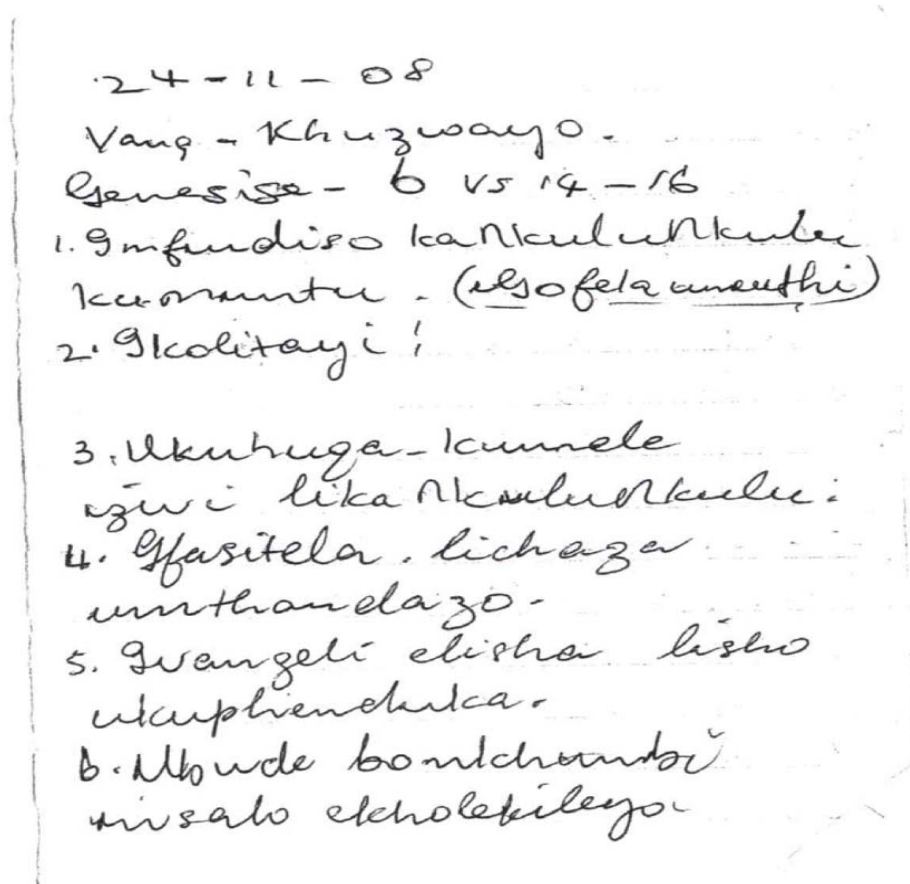 24-11-08
Vang - Khuzwayo.
Genesise - 6 vs 14-16
1. Imfundiso kaNkuluNkulu
kumuntu. (ugofela umuthi)
2. Ikolitayi!
3. Ukuhuqa - kumele
izwi lika NkuluNkulu.
4. Ifasitela. lichaza
umthandazo.
5. Ivangeli elisha lisho
ukuphenduka.
6. Ubude bomkhumbi
misalo ekholekileyo